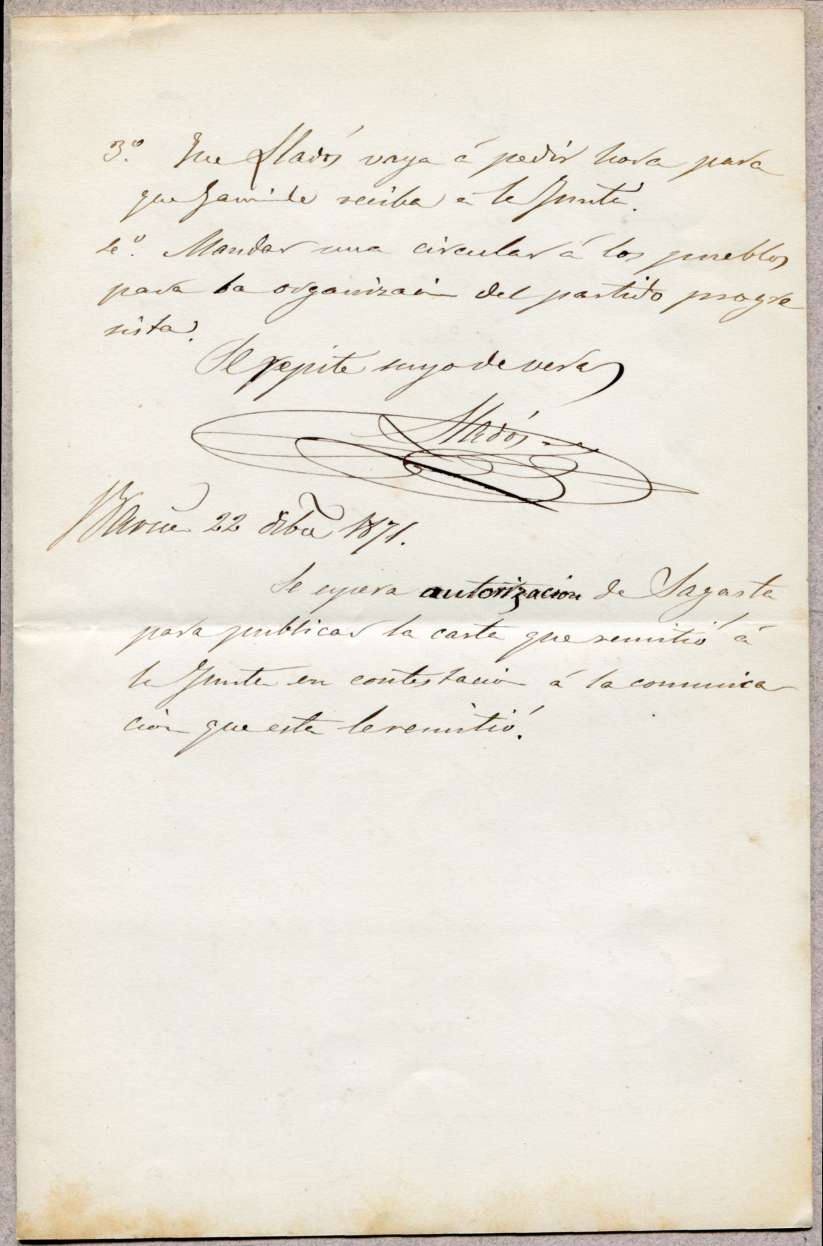 3º. Que Lladós vaya á pedir hora para
que Gaminde reciba a la Junta.
4º. Mandar una circular á los pueblos
para la organizacion del partido progre
sista.
Se repite suyo de veras
Lladós
Barna 22 dibre 1871.
Se espera autorización de Sagasta
para publicar la carta que remitió á
la Junta en contestacion á la comunica
cion que esta le remitió.